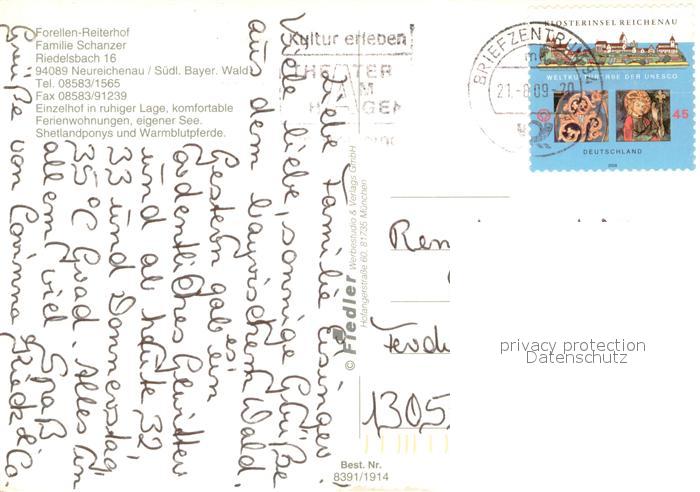 Forellen-Reiterhof
Familie Schanzer
Riedelsbach 16
94089 Neureichenau / Südl. Bayer. Wald
Tel. 08583/1565
Fax 08583/91239
Einzelhof in ruhiger Lage, komfortable
Ferienwohnungen, eigener See.
Shetlandponys und Warmblutpferde.
Liebe Familie
Viele liebe, sonnige Grüße
aus dem bayrischem Wald.
Gestern gab es ein
ordentliches Gewitter
und ab heute 32,
33 und Donnerstag
35 °C Grad. Alles in
allem viel Spaß
Grüße von Corinna, & Co.
Kultur erleben
THEATER
AM
BRIEFZENTRUM
21.-8.09-20
KLOSTERINSEL REICHENAU
WELTKULTURERBE DER UNESCO
45
DEUTSCHLAND
2008
© Fiedler Werbestudio & Verlags GmbH
Hofangerstraße 60, 81735 München
Ren
Ferd
1305
privacy protection
Datenschutz
Best. Nr.
8391/1914